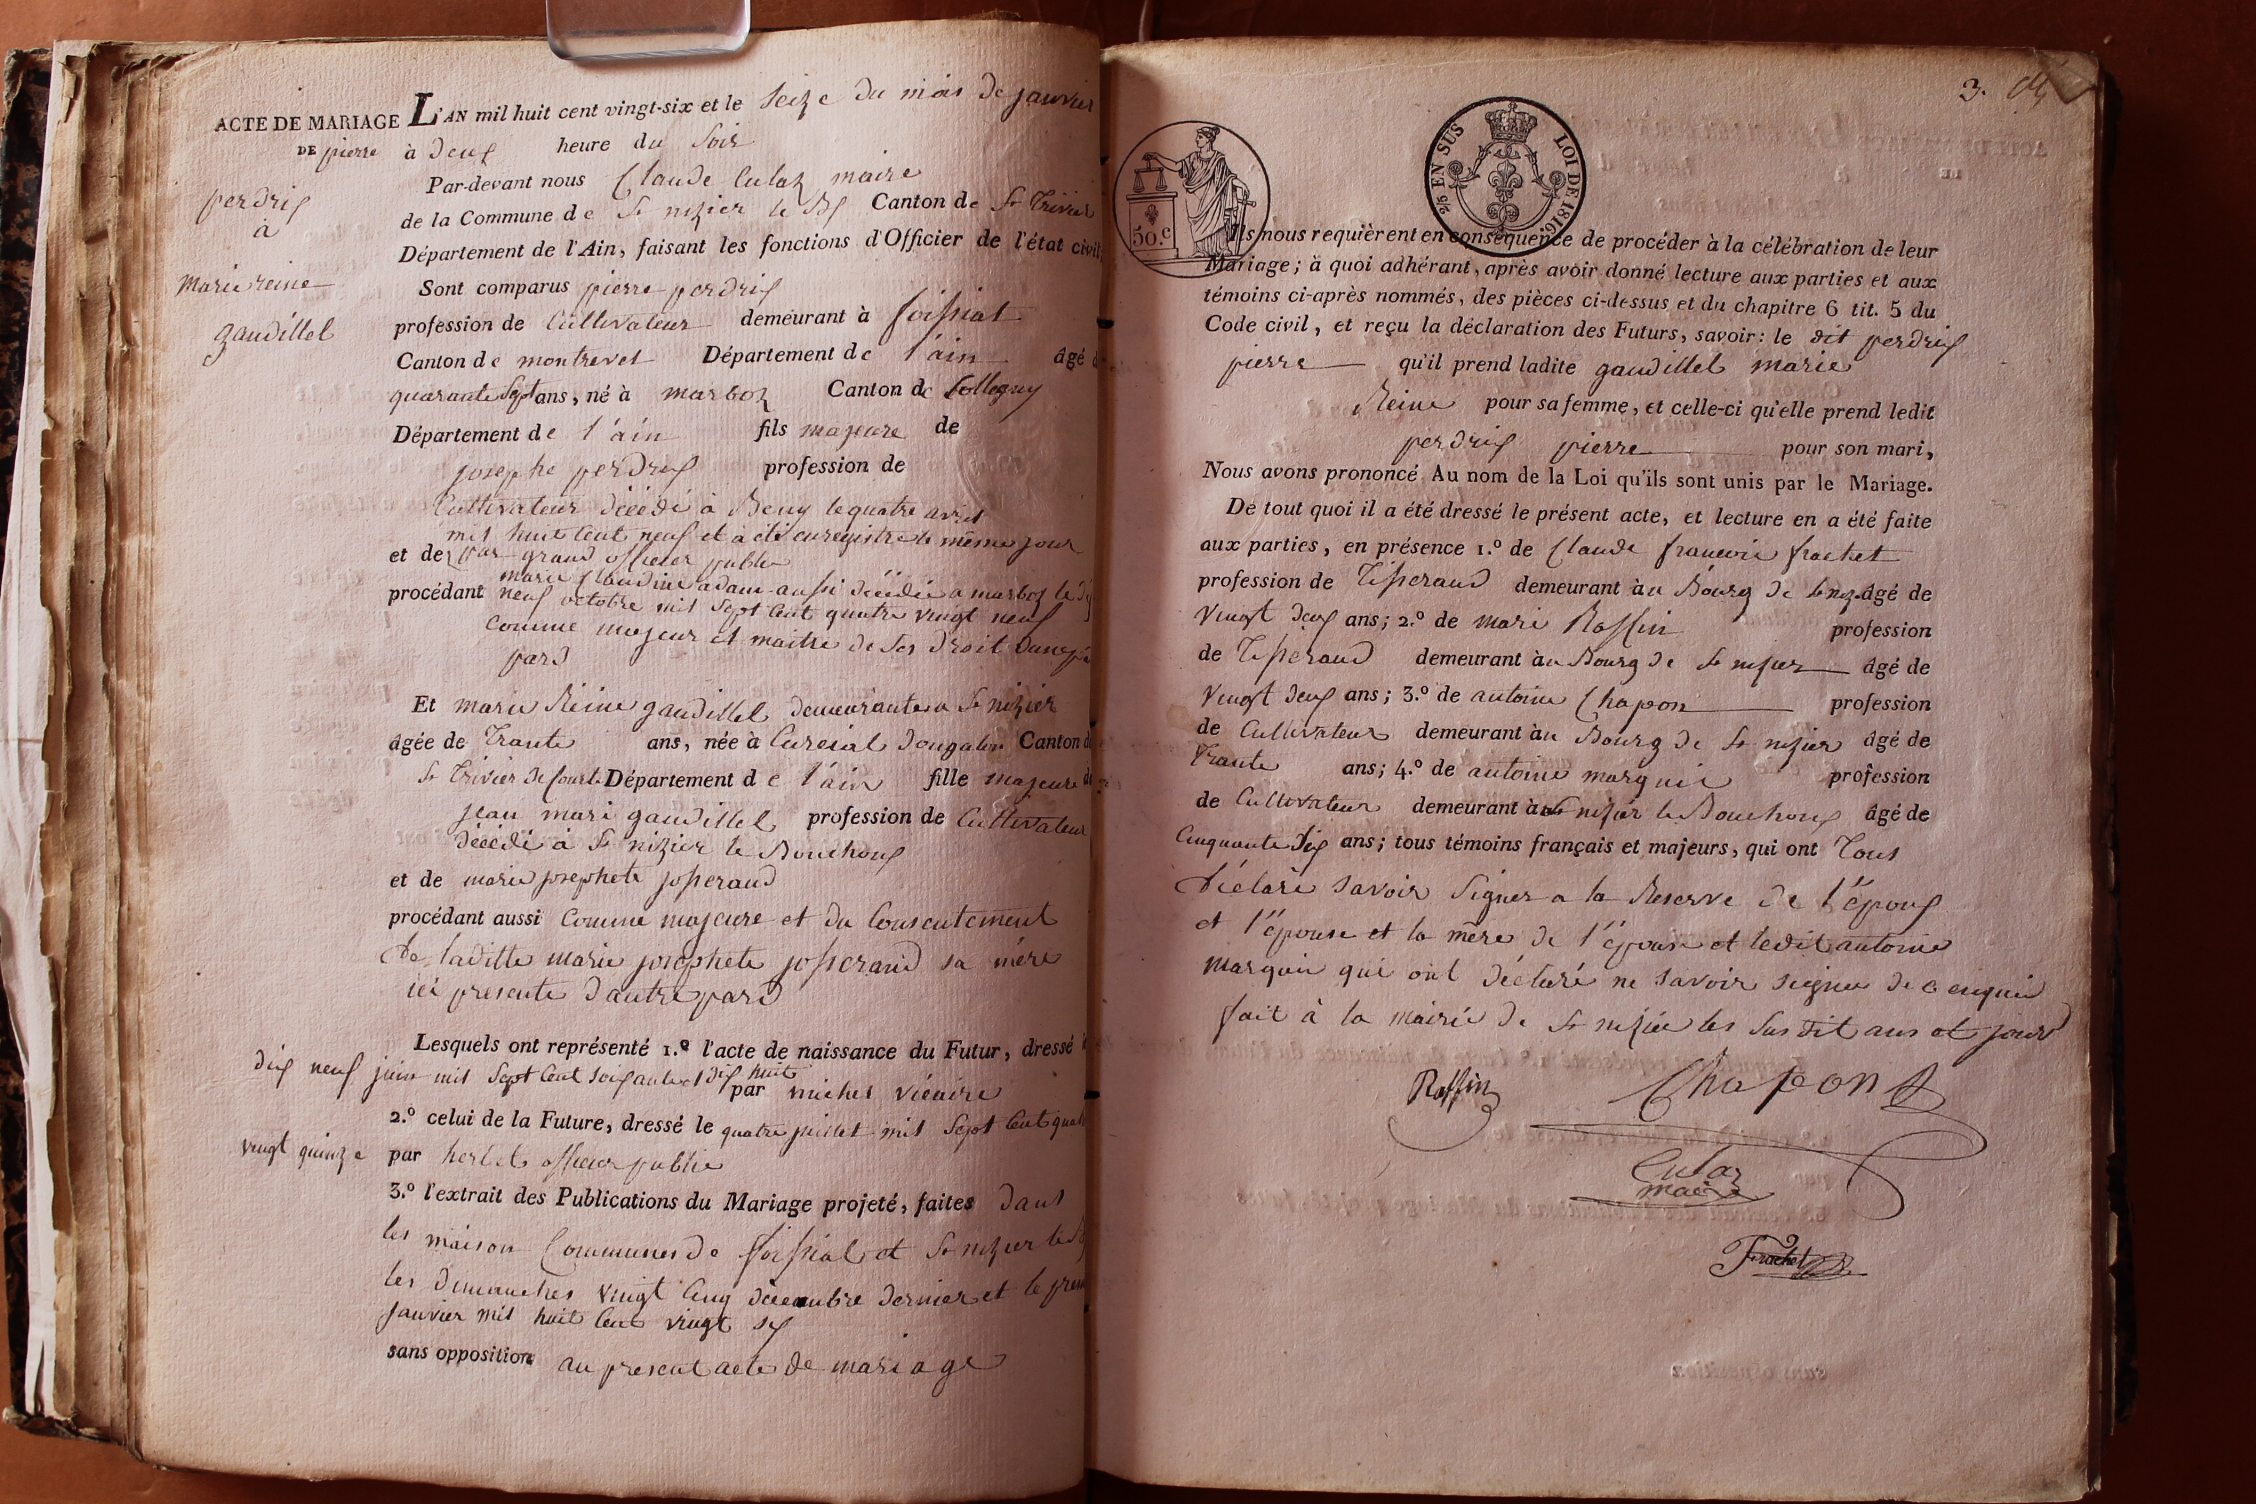 ACTE DE MARIAGE L'AN mil huit cent vingt-six et le Seize du mois de janvier
DE pierre à deux heure du Soir
perdrix
à
marie reine
gaudillet
Par-devant nous Claude Culaz maire
de la Commune de St nizier le Bx Canton de St Trivier
Département de l'Ain, faisant les fonctions d'Officier de l'état civil
Sont comparus pierre perdrix
profession de Cultivateur demeurant à foissiat
Canton de montrevel Département de l'ain âgé d
quarante Sept ans, né à marboz Canton de Collogny
Département de l'ain fils majeure de
josephe perdrix profession de
Cultivateur décédé à Beny le quatre avril
mil huit Cent neuf et à été enregistré le même jour
par grand officier public
et de
marie Claudine adam aussi décédée a marboz le dix
procédant neuf octobre mil Sept Cent quatre vingt neuf
Comme majeur et maitre de Ses droit dune
pard
Et marie Reine gaudillet demeurante a St nizier
âgée de Trante ans, née à Curcial dongalon Canton de
St Trivier de Courte Département de l'ain fille majeure de
jean mari gaudillet profession de Cultivateur
décédé à St nizier le Bouchoux
et de marie josephete josserand
procédant aussi Comme majeure et du Consentement
de laditte marie josephete josserand sa mére
ici presente d'autre pard
Lesquels ont représenté 1.º l'acte de naissance du Futur, dressé l
dix neuf juin mil Sept Cent soixante et dix huit
par michel vicaire
2.º celui de la Future, dressé le quatre juillet mil Sept Cent quat
vingt quinze par herbet officier public
3.º l'extrait des Publications du Mariage projeté, faites dans
les maison Communes de foissiat et St nizier le B
les dimanches vingt Cinq décembre dernier et le prem
janvier mil huit Cent vingt six
sans opposition au present acte de mariage
3.
2/5 EN SUS LOI DE 1816.
50.c
Ils nous requièrent en conséquence de procéder à la célébration de leur
Mariage; à quoi adhérant, après avoir donné lecture aux parties et aux
témoins ci-après nommés, des pièces ci-dessus et du chapitre 6 tit. 5 du
Code civil, et reçu la déclaration des Futurs, savoir: le dit perdrix
pierre qu'il prend ladite gaudillet marie
Reine pour sa femme, et celle-ci qu'elle prend ledit
perdrix pierre pour son mari,
Nous avons prononcé Au nom de la Loi qu'ils sont unis par le Mariage.
De tout quoi il a été dressé le présent acte, et lecture en a été faite
aux parties, en présence 1.º de Claude francois frachet
profession de Tisserand demeurant àu Bourg de St niz. âgé de
vingt deux ans; 2.º de mari Raffin profession
de Tisserand demeurant àu Bourg de St nizier âgé de
vingt deux ans; 3.º de antoine Chapon profession
de Cultivateur demeurant àu Bourg de St nizier âgé de
Trante ans; 4.º de antoine marguin profession
de Cultivateur demeurant à St nizier le Bouchoux âgé de
Cinquante Dix ans; tous témoins français et majeurs, qui ont Tous
déclaré savoir Signer a la Reserve de l'époux
et l'épouse et la mêre de l'épouse et ledit antoine
marguin qui ont déclaré ne savoir signer de ce enquis
fait à la mairie de St nizier les Sus dit ans et jour
Raffin Chapon
Culaz
maire
Frachet